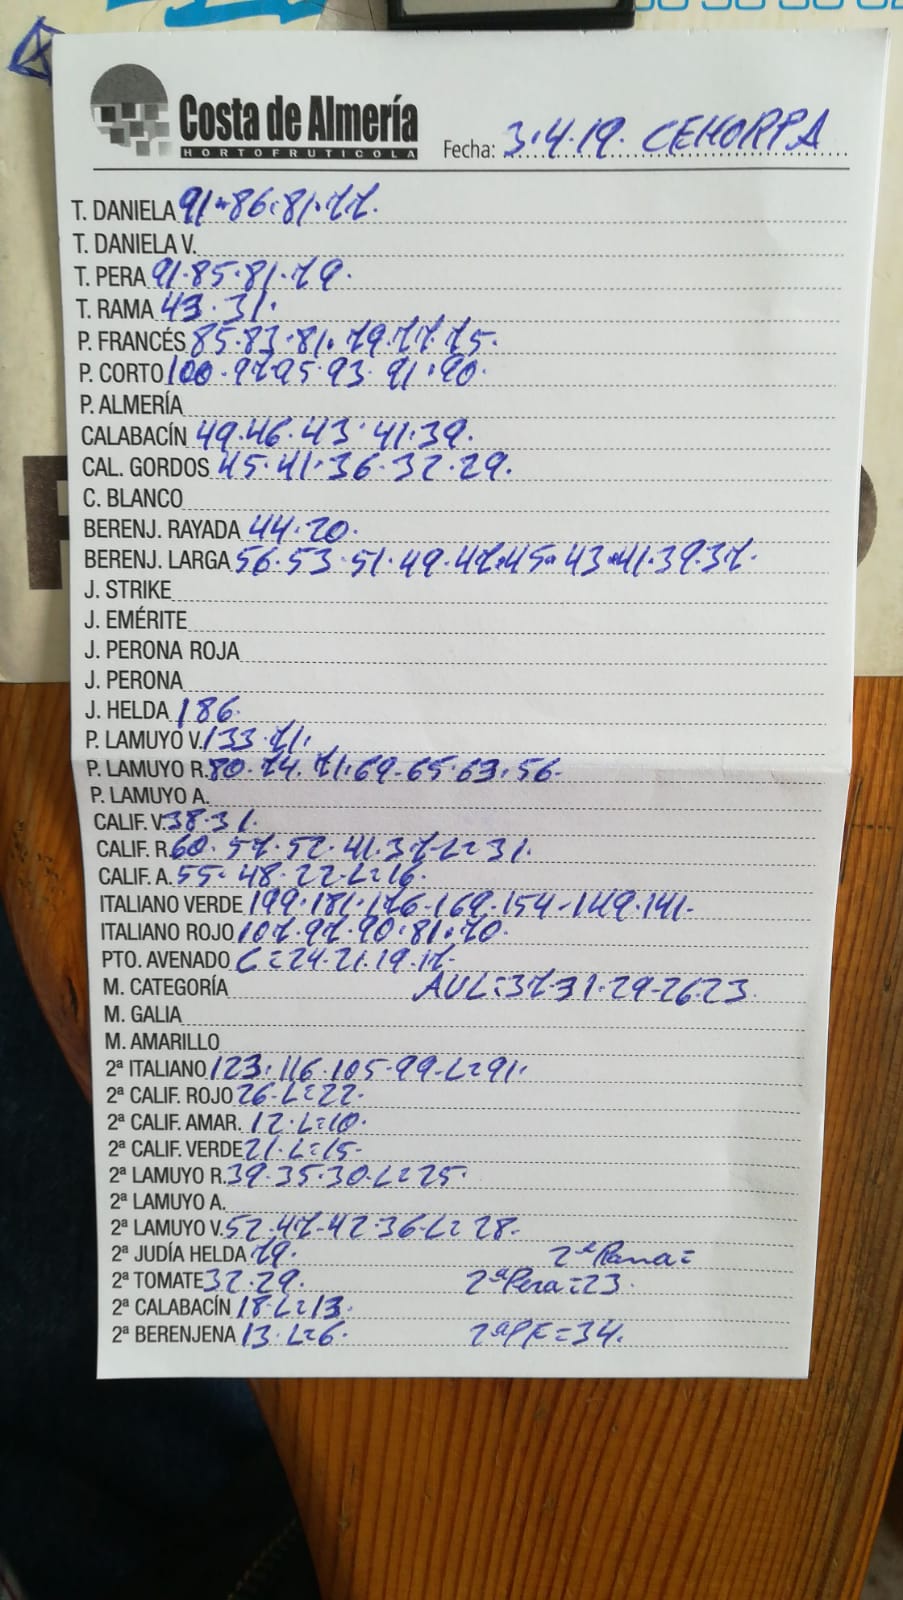 Costa de Almería
HORTOFRUTICOLA
Fecha: 3.4.19. CEHORPA
T. DANIELA 91.86.81.77.
T. DANIELA V.
T. PERA 91.85.81.79.
T. RAMA 43.31.
P. FRANCÉS 85.83.81.79.77.75.
P. CORTO 100.97.95.93.91.90.
P. ALMERÍA
CALABACÍN 49.46.43.41.39.
CAL. GORDOS 45.41.36.32.29.
C. BLANCO
BERENJ. RAYADA 44.20.
BERENJ. LARGA 56.53.51.49.47.45.43.41.39.37.
J. STRIKE
J. EMÉRITE
J. PERONA ROJA
J. PERONA
J. HELDA 186.
P. LAMUYO V. 133.71.
P. LAMUYO R. 80.74.71.69.65.63.56.
P. LAMUYO A.
CALIF. V. 38.31.
CALIF. R. 60.57.52.41.37.L=31.
CALIF. A. 55.48.22.L=16.
ITALIANO VERDE 199.181.176-169.154-149.141-
ITALIANO ROJO 107.97.90.81.70.
PTO. AVENADO C=24.21.19.17.
M. CATEGORÍA AVL=37.31.29-26.23.
M. GALIA
M. AMARILLO
2ª ITALIANO 123.116.105-99-L=91.
2ª CALIF. ROJO 26-L=22.
2ª CALIF. AMAR. 12.L=10.
2ª CALIF. VERDE 21.L=15-
2ª LAMUYO R. 39.35.30.L=25.
2ª LAMUYO A.
2ª LAMUYO V. 52.47-42.36-L=28.
2ª JUDÍA HELDA 79. 2ª Rama=
2ª TOMATE 32.29. 2ª Pera=23.
2ª CALABACÍN 18.L=13.
2ª BERENJENA 13.L=6. 2ª PF=34.